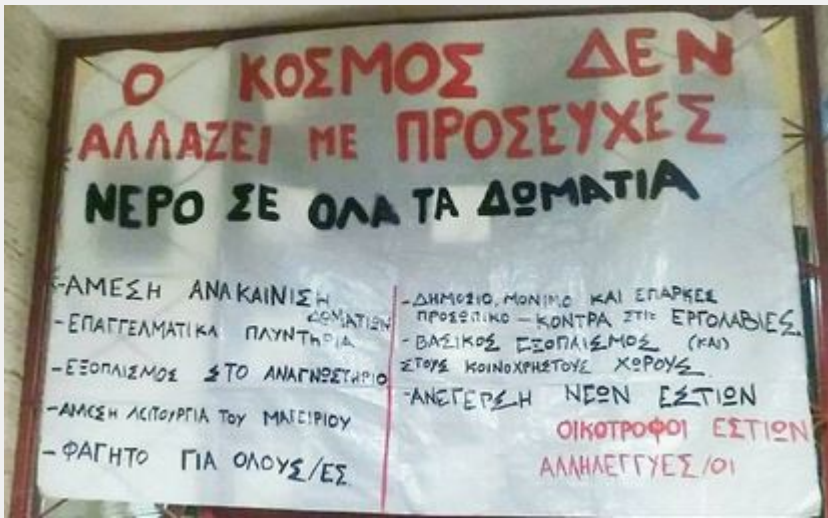 Ο ΚΟΣΜΟΣ ΔΕΝ
ΑΛΛΑΖΕΙ ΜΕ ΠΡΟΣΕΥΧΕΣ
ΝΕΡΟ ΣΕ ΟΛΑ ΤΑ ΔΩΜΑΤΙΑ
-ΑΜΕΣΗ ΑΝΑΚΑΙΝΙΣΗ
ΔΩΜΑΤΙΩΝ
-ΕΠΑΓΓΕΛΜΑΤΙΚΑ ΠΛΥΝΤΗΡΙΑ
-ΕΞΟΠΛΙΣΜΟΣ ΣΤΟ ΑΝΑΓΝΩΣΤΗΡΙΟ
-ΑΜΕΣΗ ΛΕΙΤΟΥΡΓΙΑ ΤΟΥ ΜΑΓΕΙΡΙΟΥ
-ΦΑΓΗΤΟ ΓΙΑ ΟΛΟΥΣ/ΕΣ
-ΔΗΜΟΣΙΟ, ΜΟΝΙΜΟ ΚΑΙ ΕΠΑΡΚΕΣ
ΠΡΟΣΩΠΙΚΟ - ΚΟΝΤΡΑ ΣΤΙΣ ΕΡΓΟΛΑΒΙΕΣ
-ΒΑΣΙΚΟΣ ΕΞΟΠΛΙΣΜΟΣ (ΚΑΙ)
ΣΤΟΥΣ ΚΟΙΝΟΧΡΗΣΤΟΥΣ ΧΩΡΟΥΣ
-ΑΝΕΓΕΡΣΗ ΝΕΩΝ ΕΣΤΙΩΝ
ΟΙΚΟΤΡΟΦΟΙ ΕΣΤΙΩΝ
ΑΛΛΗΛΕΓΓΥΕΣ/ΟΙ